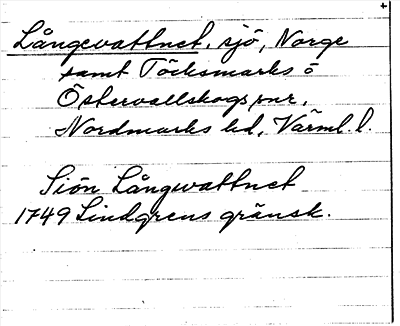 Långevattnet, sjö, Norge
samt Töcksmarks o
Östervallskogs snr,
Nordmarks hd, Värml. l.
Siön Långwattnet
1749 Lindgrens gränsk.